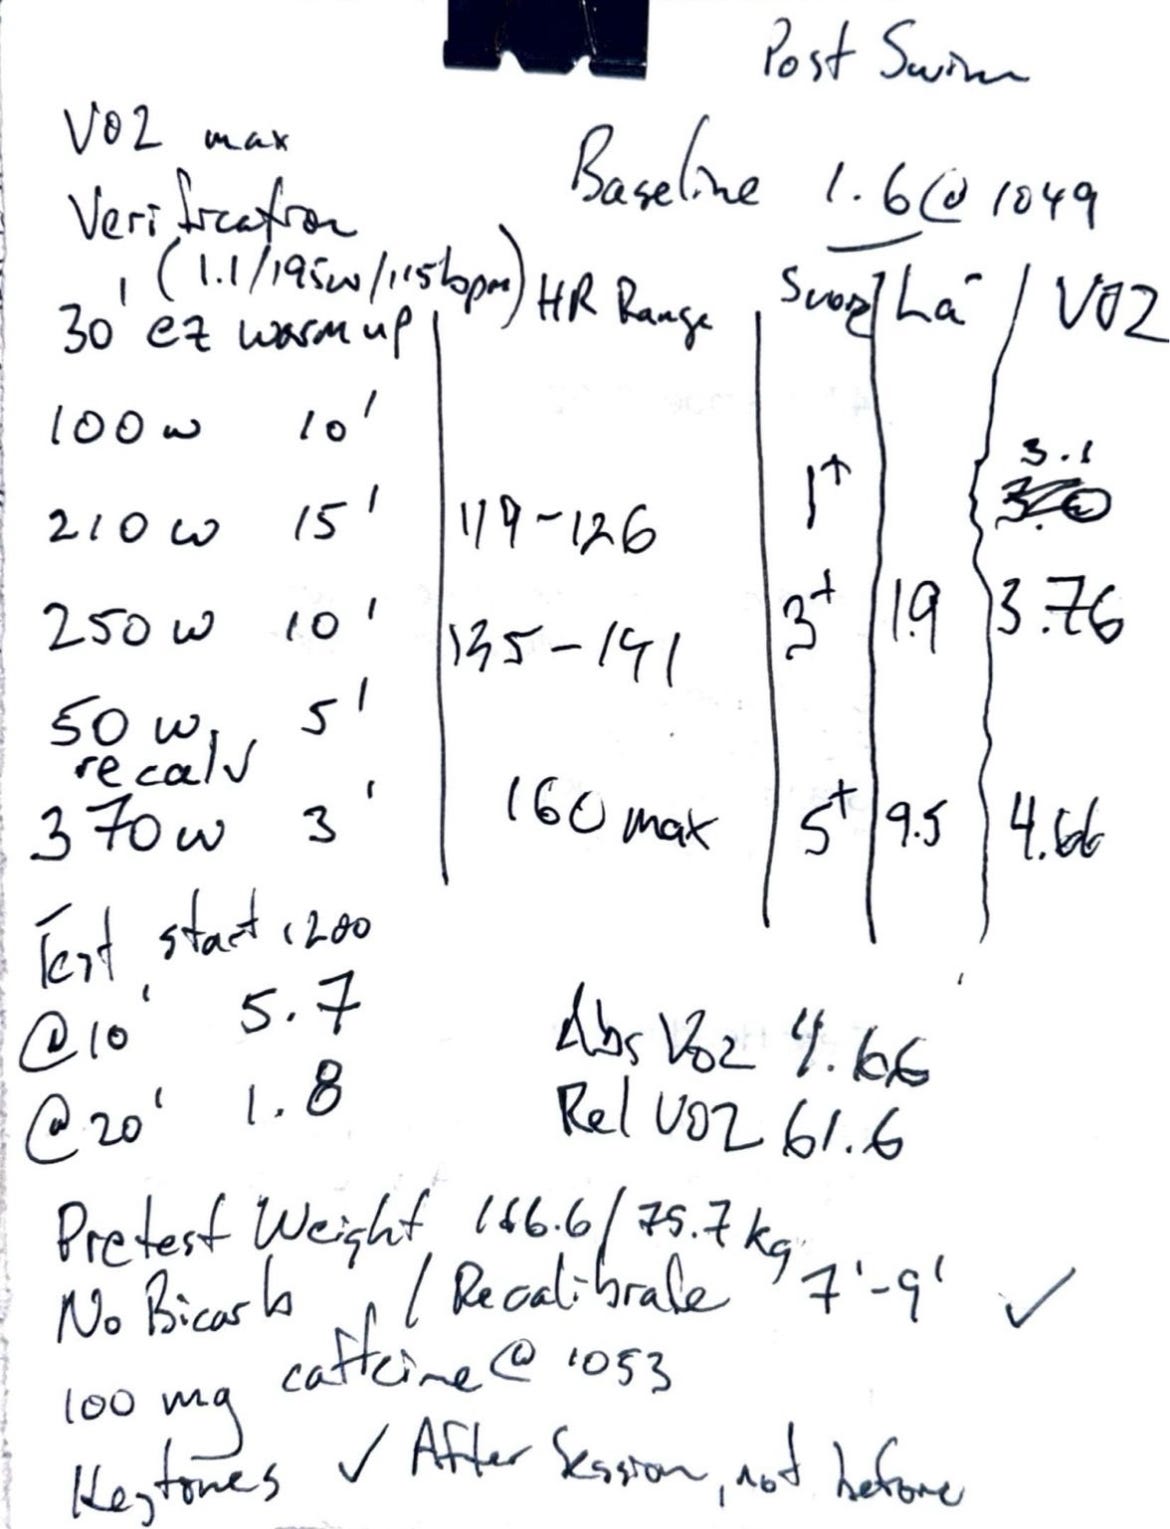 Post Swim
VO2 max
Verification
Baseline 1.6 @ 1049
(1.1/195w/115bpm)
30' ez warm up | HR Range | | La- / VO2
100 w 10'
210 w 15' 119-126 1+ 3.1
250 w 10' 135-141 3+ 1.9 3.76
50 w 5'
recal √
370 w 3' 160 max 5+ 9.5 4.66
Test start 1200
@10' 5.7
@20' 1.8
Abs VO2 4.66
Rel VO2 61.6
Pretest Weight 166.6/75.7 kg
No Bicarb / Recalibrate 7'-9' ✓
100 mg caffeine @ 1053
Keytones ✓ After Session, not before